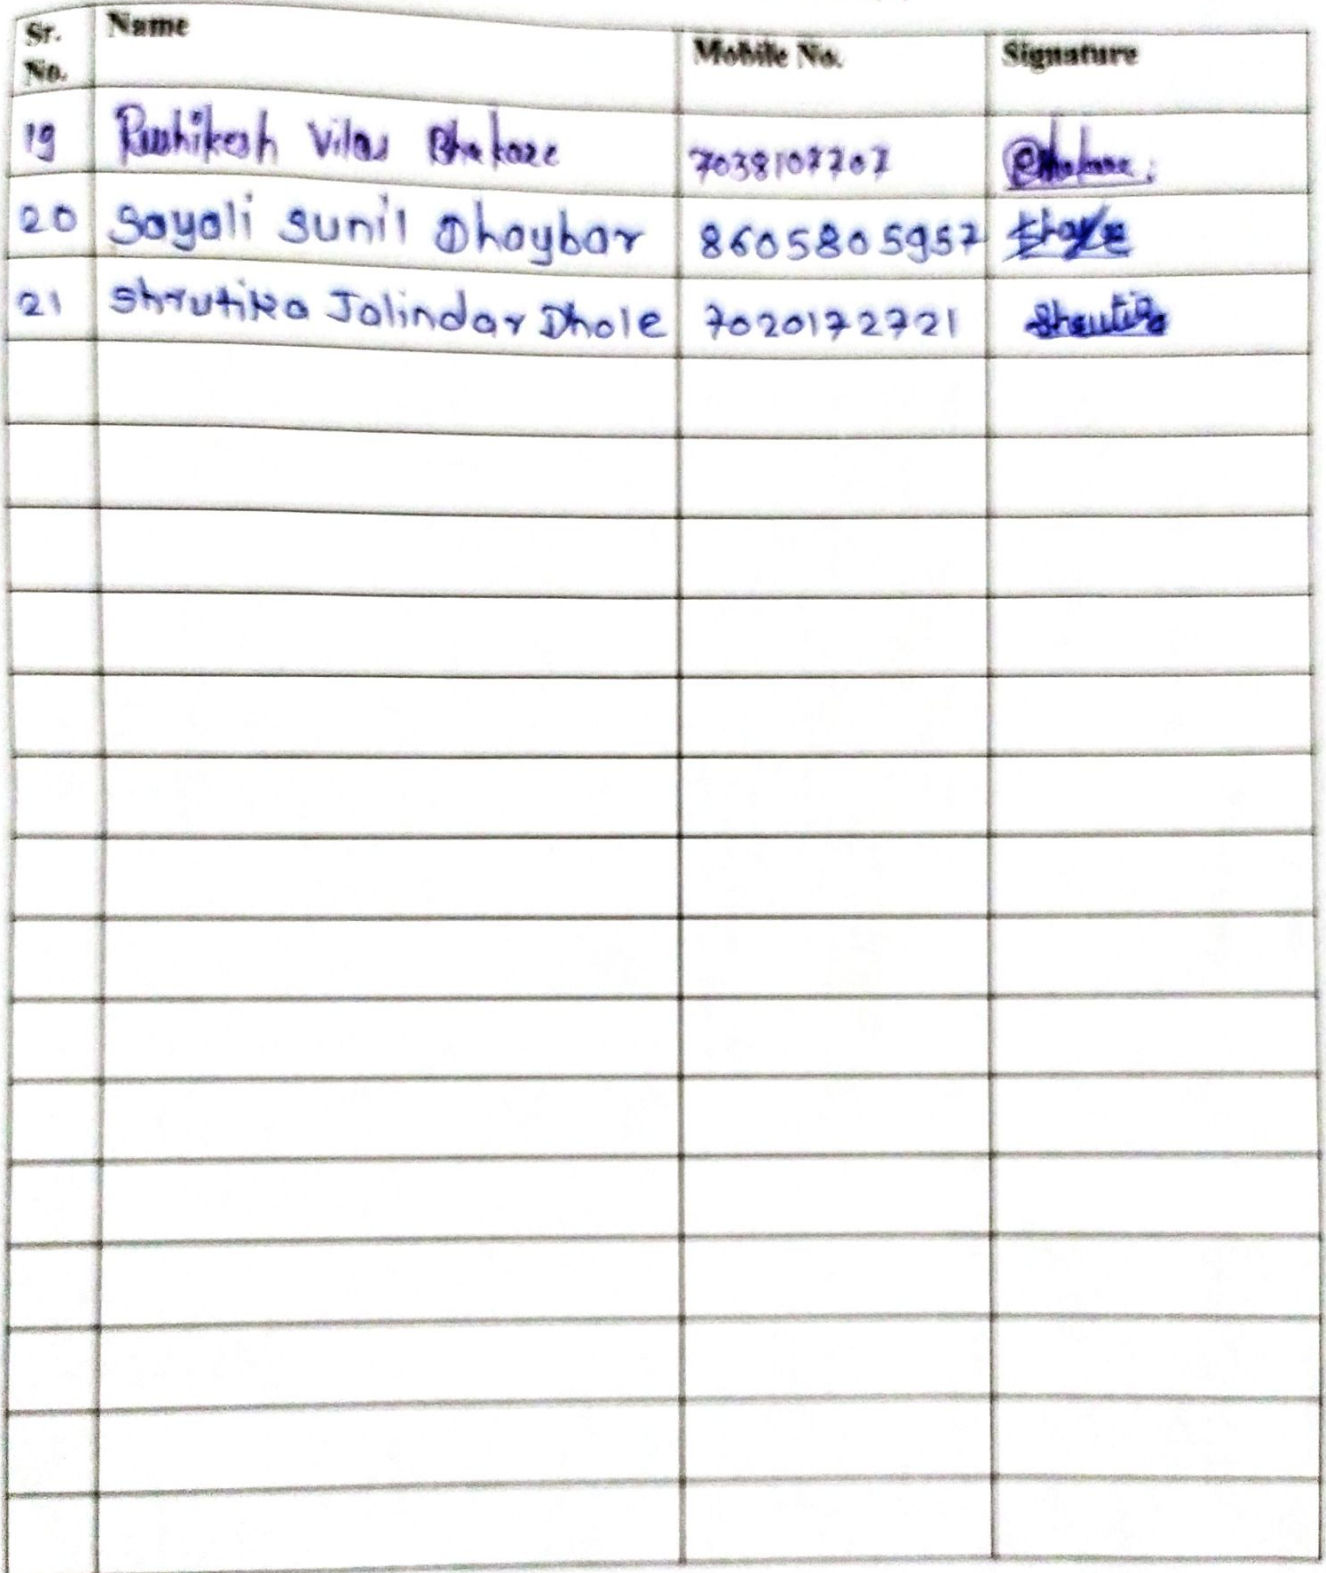 Sr. No. Name Mobile No. Signature
19 Rushikesh Vilas Bhakare 7038107707
20 Sayali Sunil Dhaybar 8605805957
21 Shrutika Jalindar Dhole 7020172721